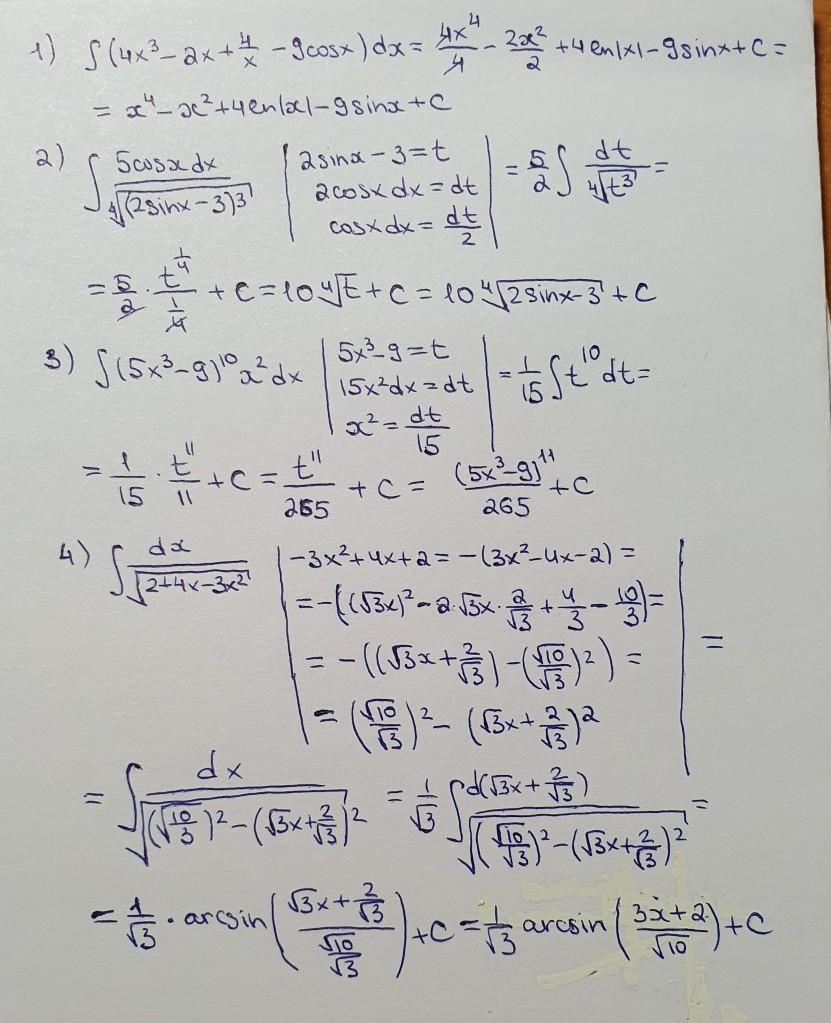 1) ∫(4x³ - 2x + 4/x - 9cosx)dx = 4x⁴/4 - 2x²/2 + 4ln|x| - 9sinx + C =
= x⁴ - x² + 4ln|x| - 9sinx + C
2) ∫ 5cosx dx / ⁴√(2sinx-3)³ | 2sinx - 3 = t | = 5/2 ∫ dt/⁴√t³ =
2cosx dx = dt
cosx dx = dt/2
= 5/2 · t^(1/4)/(1/4) + C = 10 ⁴√t + C = 10 ⁴√(2sinx-3) + C
3) ∫(5x³-9)¹⁰ x² dx | 5x³-9 = t | = 1/15 ∫ t¹⁰ dt =
15x² dx = dt
x² = dt/15
= 1/15 · t¹¹/11 + C = t¹¹/265 + C = (5x³-9)¹¹/265 + C
4) ∫ dx/√(2+4x-3x²) | -3x²+4x+2 = -(3x²-4x-2) =
= -((√3x)² - 2·√3x·2/√3 + 4/3 - 10/3) =
= -((√3x + 2/√3) - (√10/√3)²) =
= (√10/√3)² - (√3x + 2/√3)² | =
= ∫ dx/√((√10/3)² - (√3x + 2/√3)²) = 1/√3 ∫ d(√3x + 2/√3)/√((√10/√3)² - (√3x + 2/√3)²) =
= 1/√3 · arcsin((√3x + 2/√3)/(√10/√3)) + C = 1/√3 arcsin((3x+2)/√10) + C